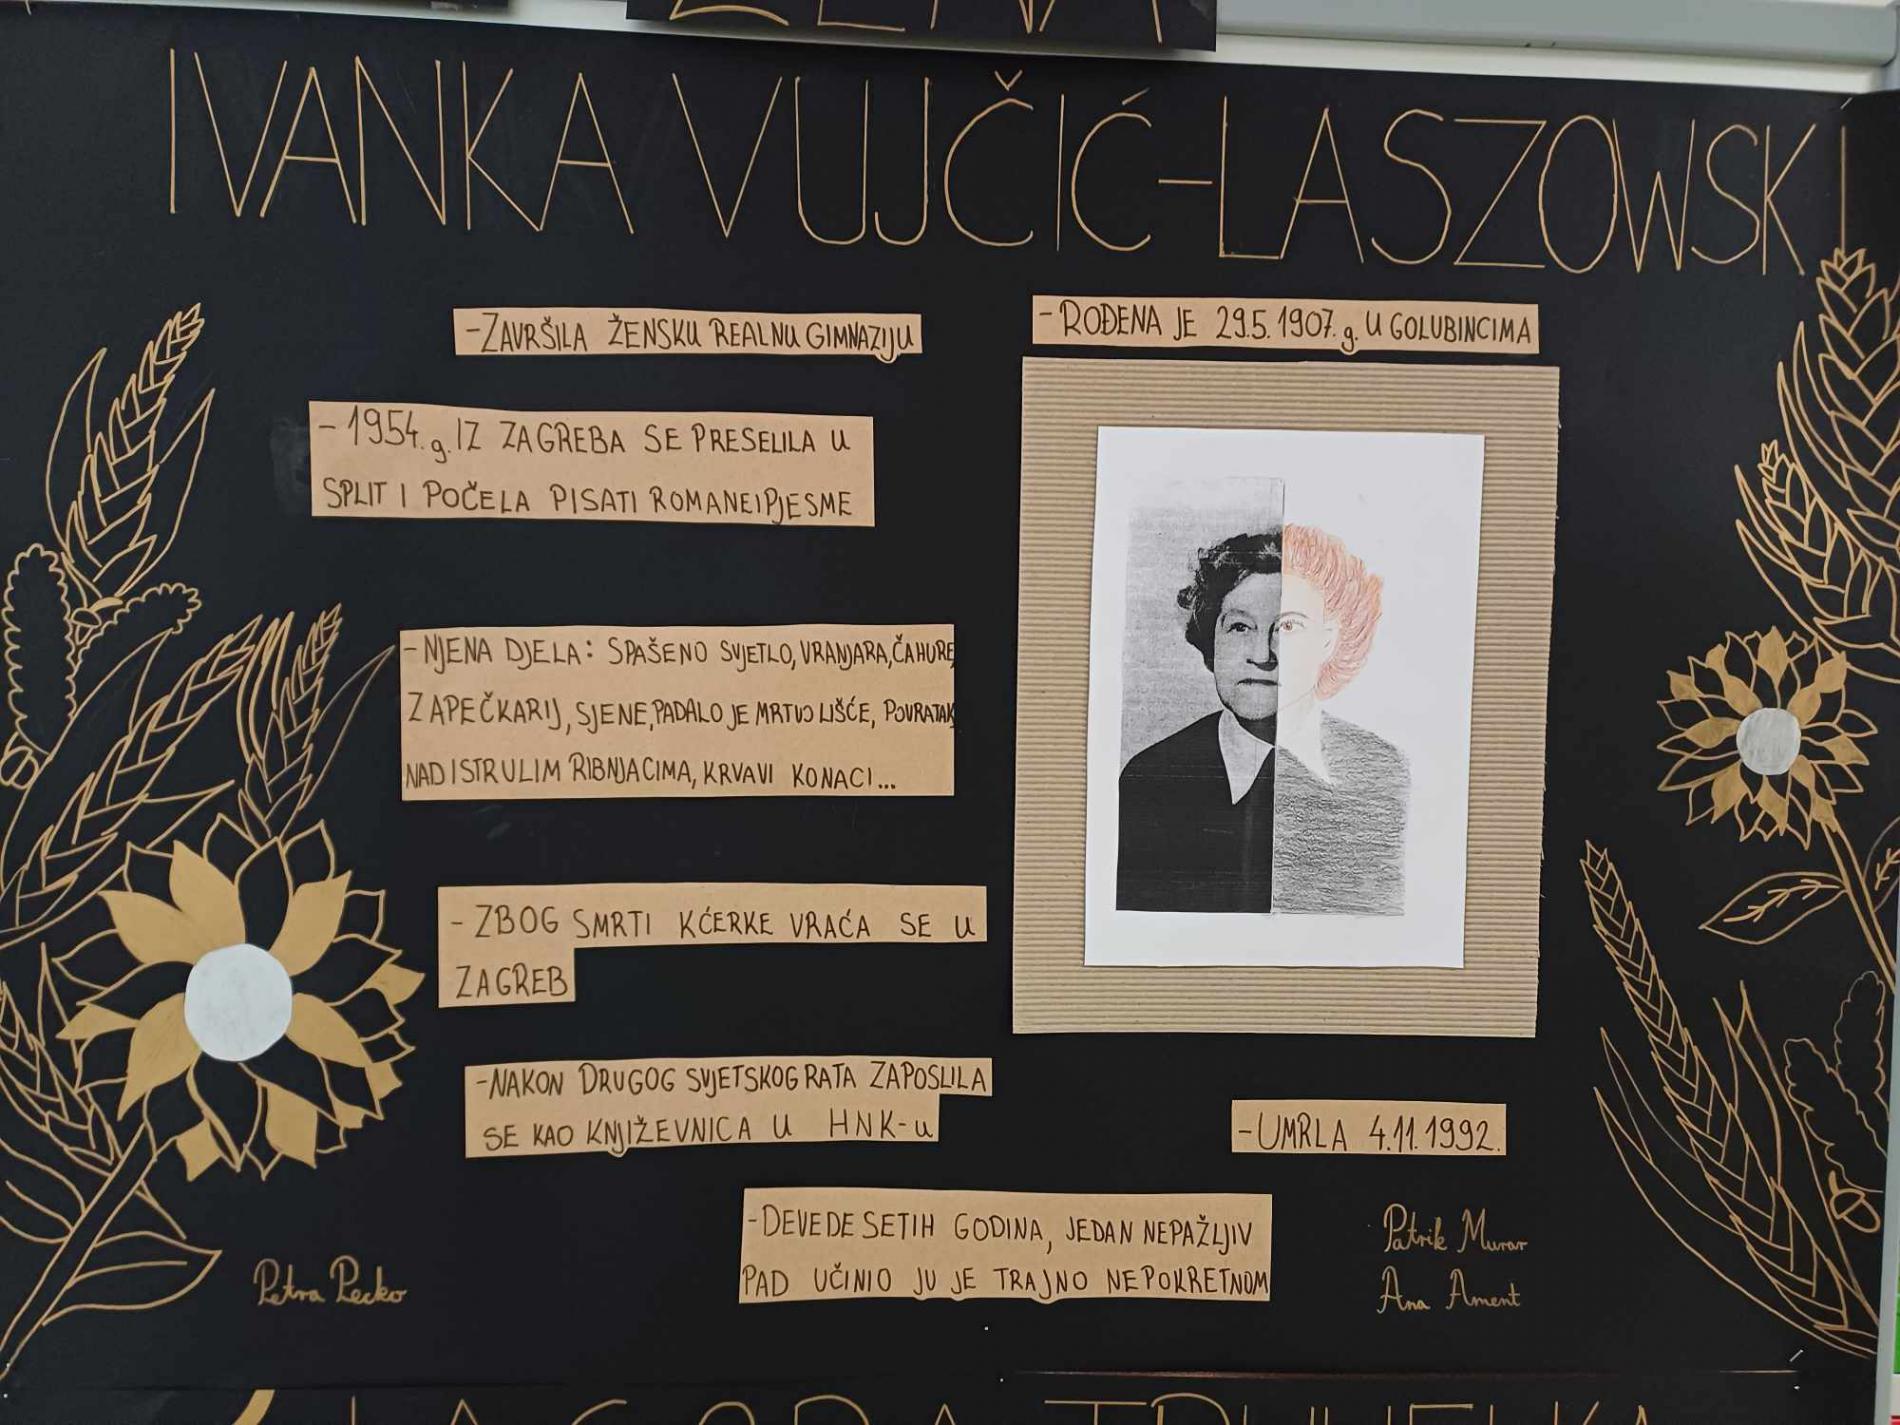 ŽENA
IVANKA VUJČIĆ-LASZOWSKI
-ZAVRŠILA ŽENSKU REALNU GIMNAZIJU
-ROĐENA JE 29.5.1907.g. U GOLUBINCIMA
-1954.g. IZ ZAGREBA SE PRESELILA U
SPLIT I POČELA PISATI ROMANE I PJESME
-NJENA DJELA: SPAŠENO SVJETLO, VRANJARA, ČAHURE,
ZAPEČKARIJ, SJENE, PADALO JE MRTVO LIŠĆE, POVRATAK,
NAD ISTRULIM RIBNJACIMA, KRVAVI KONACI...
-ZBOG SMRTI KĆERKE VRAĆA SE U
ZAGREB
-NAKON DRUGOG SVJETSKOG RATA ZAPOSLILA
SE KAO KNJIŽEVNICA U HNK-u
-UMRLA 4.11.1992.
-DEVEDESETIH GODINA, JEDAN NEPAŽLJIV
PAD UČINIO JU JE TRAJNO NEPOKRETNOM
Petra Pecko
Patrik Murar
Ana Ament
JAGODA TRUHELKA